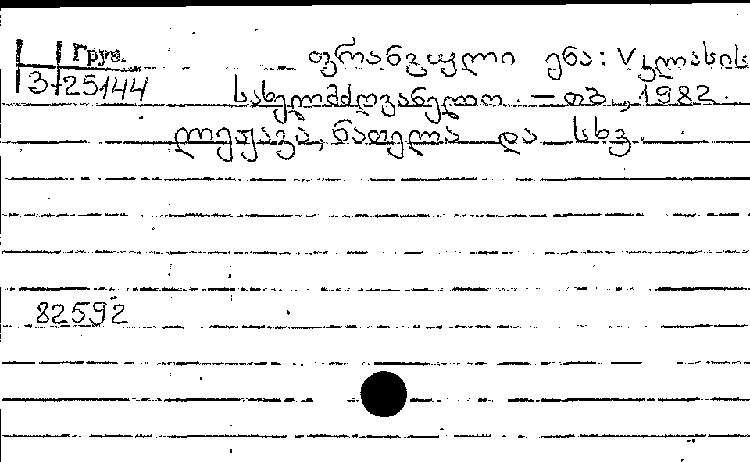 Груз.
3-25144
ფრანგული ენა: V კლასის
სახელმძღვანელო. — თბ., 1982.
ლეჟავა, ნათელა და სხვ.
82592